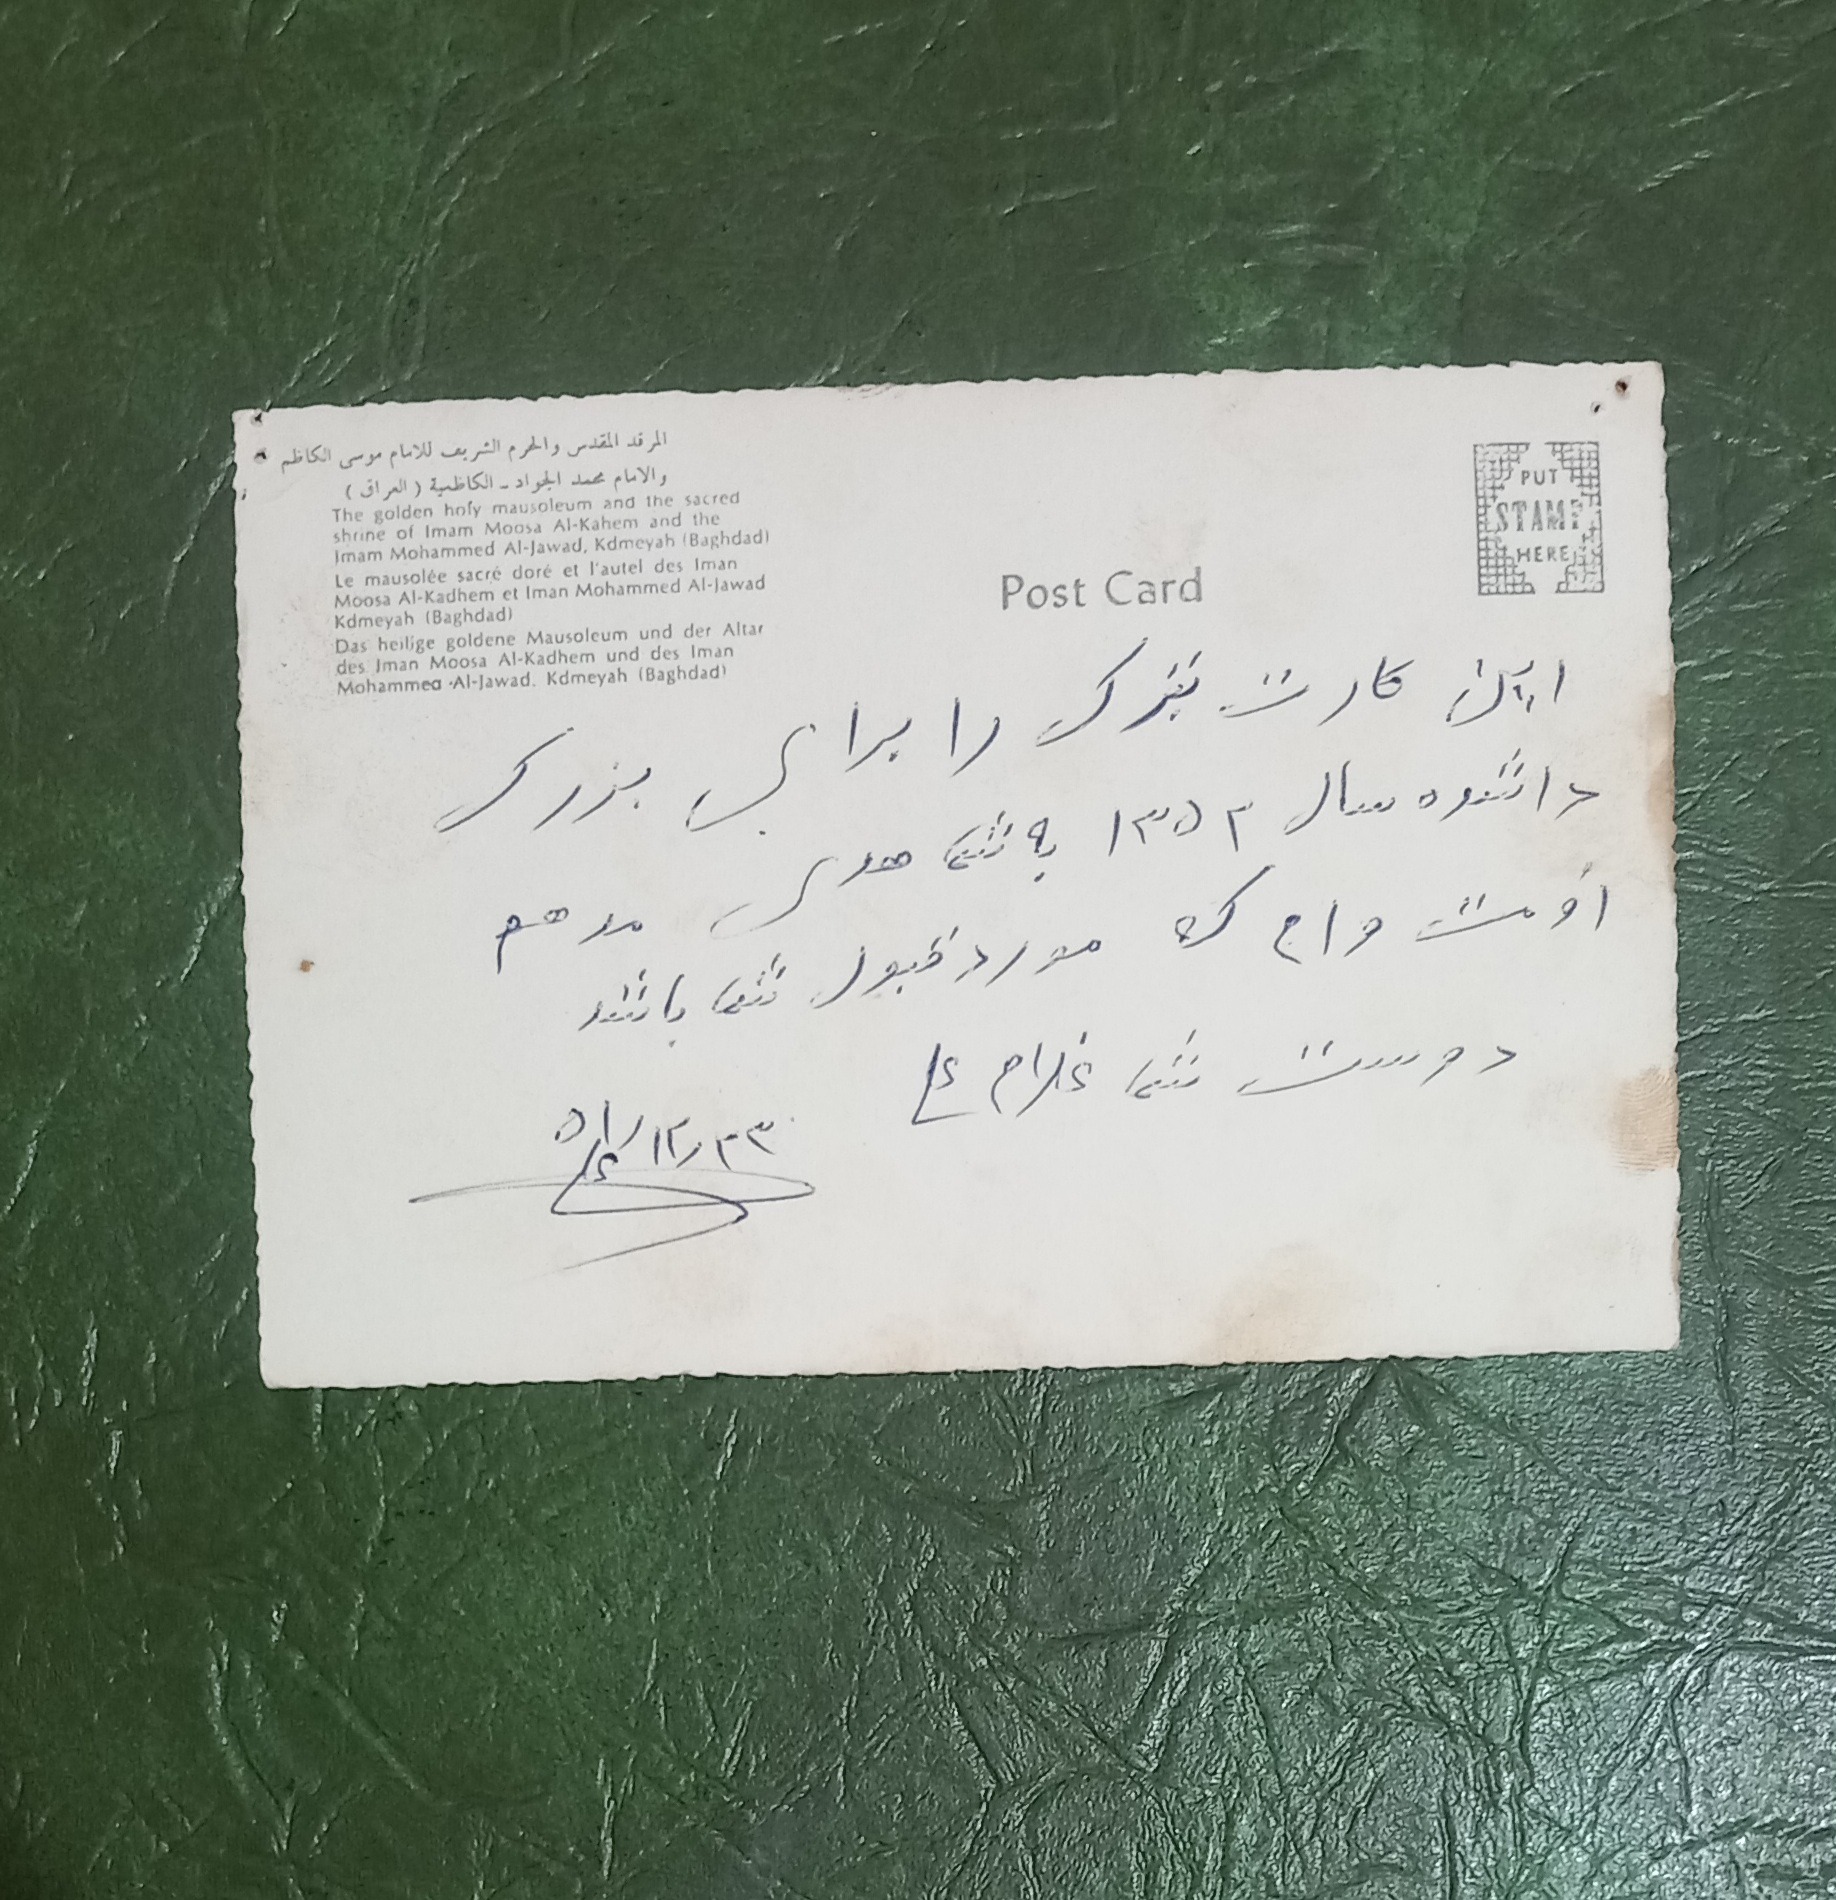 المرقد المقدس والحرم الشريف للامام موسى الكاظم
والامام محمد الجواد - الكاظمية ( العراق )
The golden holy mausoleum and the sacred
shrine of Imam Moosa Al-Kahem and the
Imam Mohammed Al-Jawad, Kdmeyah (Baghdad)
Le mausolée sacré doré et l'autel des Iman
Moosa Al-Kadhem et Iman Mohammed Al-Jawad
Kdmeyah (Baghdad)
Das heilige goldene Mausoleum und der Altar
des Iman Moosa Al-Kadhem und des Iman
Mohammed Al-Jawad. Kdmeyah (Baghdad)
Post Card
PUT
STAMP
HERE
این کارت تبرک را برای بزرک
سال ۱۳۵۲ به شما هدی مدهم
که مورد قبول شما باشد
دوست شما غلام علی
۵۱/۱۲/۲۳